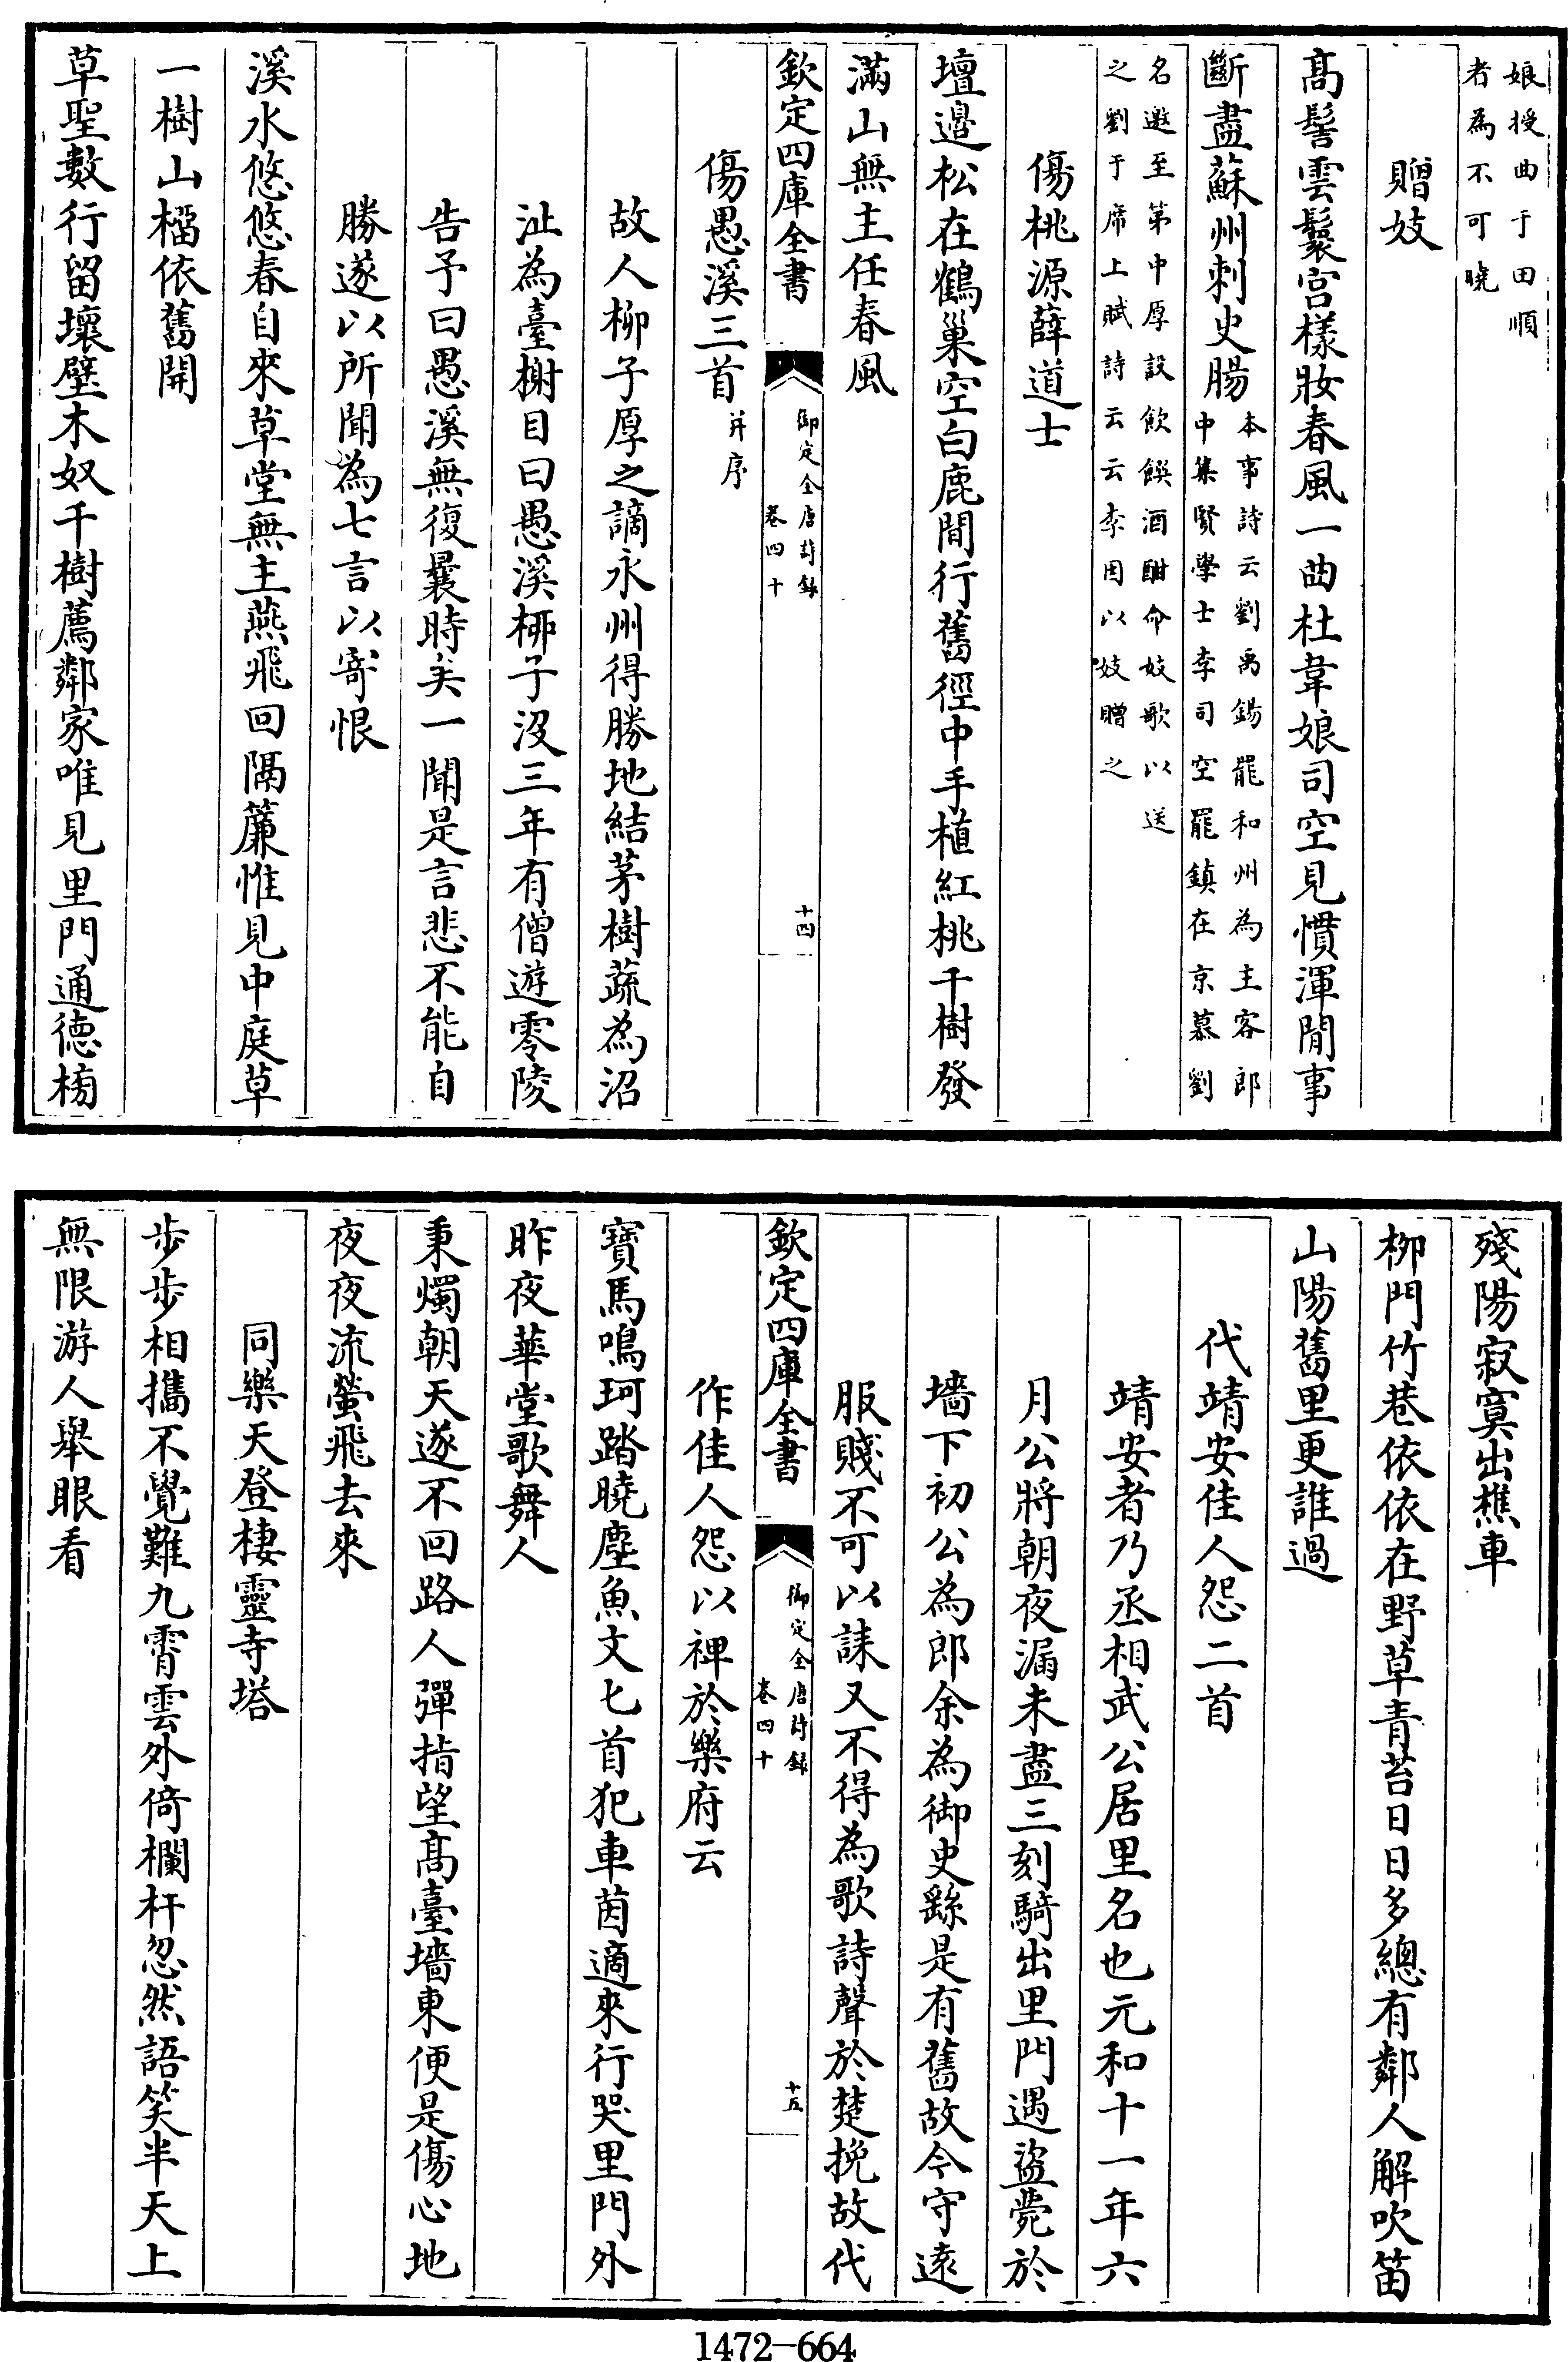 娘授曲于田順
者為不可曉
贈妓
髙髻雲鬟宫樣妝春風一曲杜韋娘司空見慣渾閒事
斷盡蘇州刺史腸
本事詩云劉禹錫罷和州為主客郎
中集賢學士李司空罷鎮在京慕劉
名邀至第中厚設飲饌酒酣命妓歌以送
之劉于席上賦詩云云李因以妓贈之
傷桃源薛道士
壇邉松在鶴巢空白鹿閒行舊徑中手植紅桃千樹發
滿山無主任春風
欽定四庫全書
御定全唐詩録
卷四十
十四
傷愚溪三首
并序
故人栁子厚之謫永州得勝地結茅樹蔬為沼
沚為臺榭目曰愚溪栁子沒三年有僧遊零陵
告予曰愚溪無復曩時矣一聞是言悲不能自
勝遂以所聞為七言以寄恨
溪水悠悠春自來草堂無主燕飛回隔簾惟見中庭草
一樹山榴依舊開
草聖數行留壞壁木奴千樹薦鄰家唯見里門通德榜
殘陽寂寞出樵車
栁門竹巷依依在野草青苔日日多總有鄰人解吹笛
山陽舊里更誰過
代靖安佳人怨二首
靖安者乃丞相武公居里名也元和十一年六
月公將朝夜漏未盡三刻騎出里門遇盜薨於
墻下初公為郎余為御史繇是有舊故今守逺
服賤不可以誄又不得為歌詩聲於楚挽故代
欽定四庫全書
御定全唐詩録
卷四十
十五
作佳人怨以裨於樂府云
寶馬鳴珂踏曉塵魚文匕首犯車茵適來行哭里門外
昨夜華堂歌舞人
秉燭朝天遂不回路人彈指望髙臺墻東便是傷心地
夜夜流螢飛去來
同樂天登棲靈寺塔
步步相攜不覺難九霄雲外倚欄杆忽然語笑半天上
無限游人舉眼看
1472-664